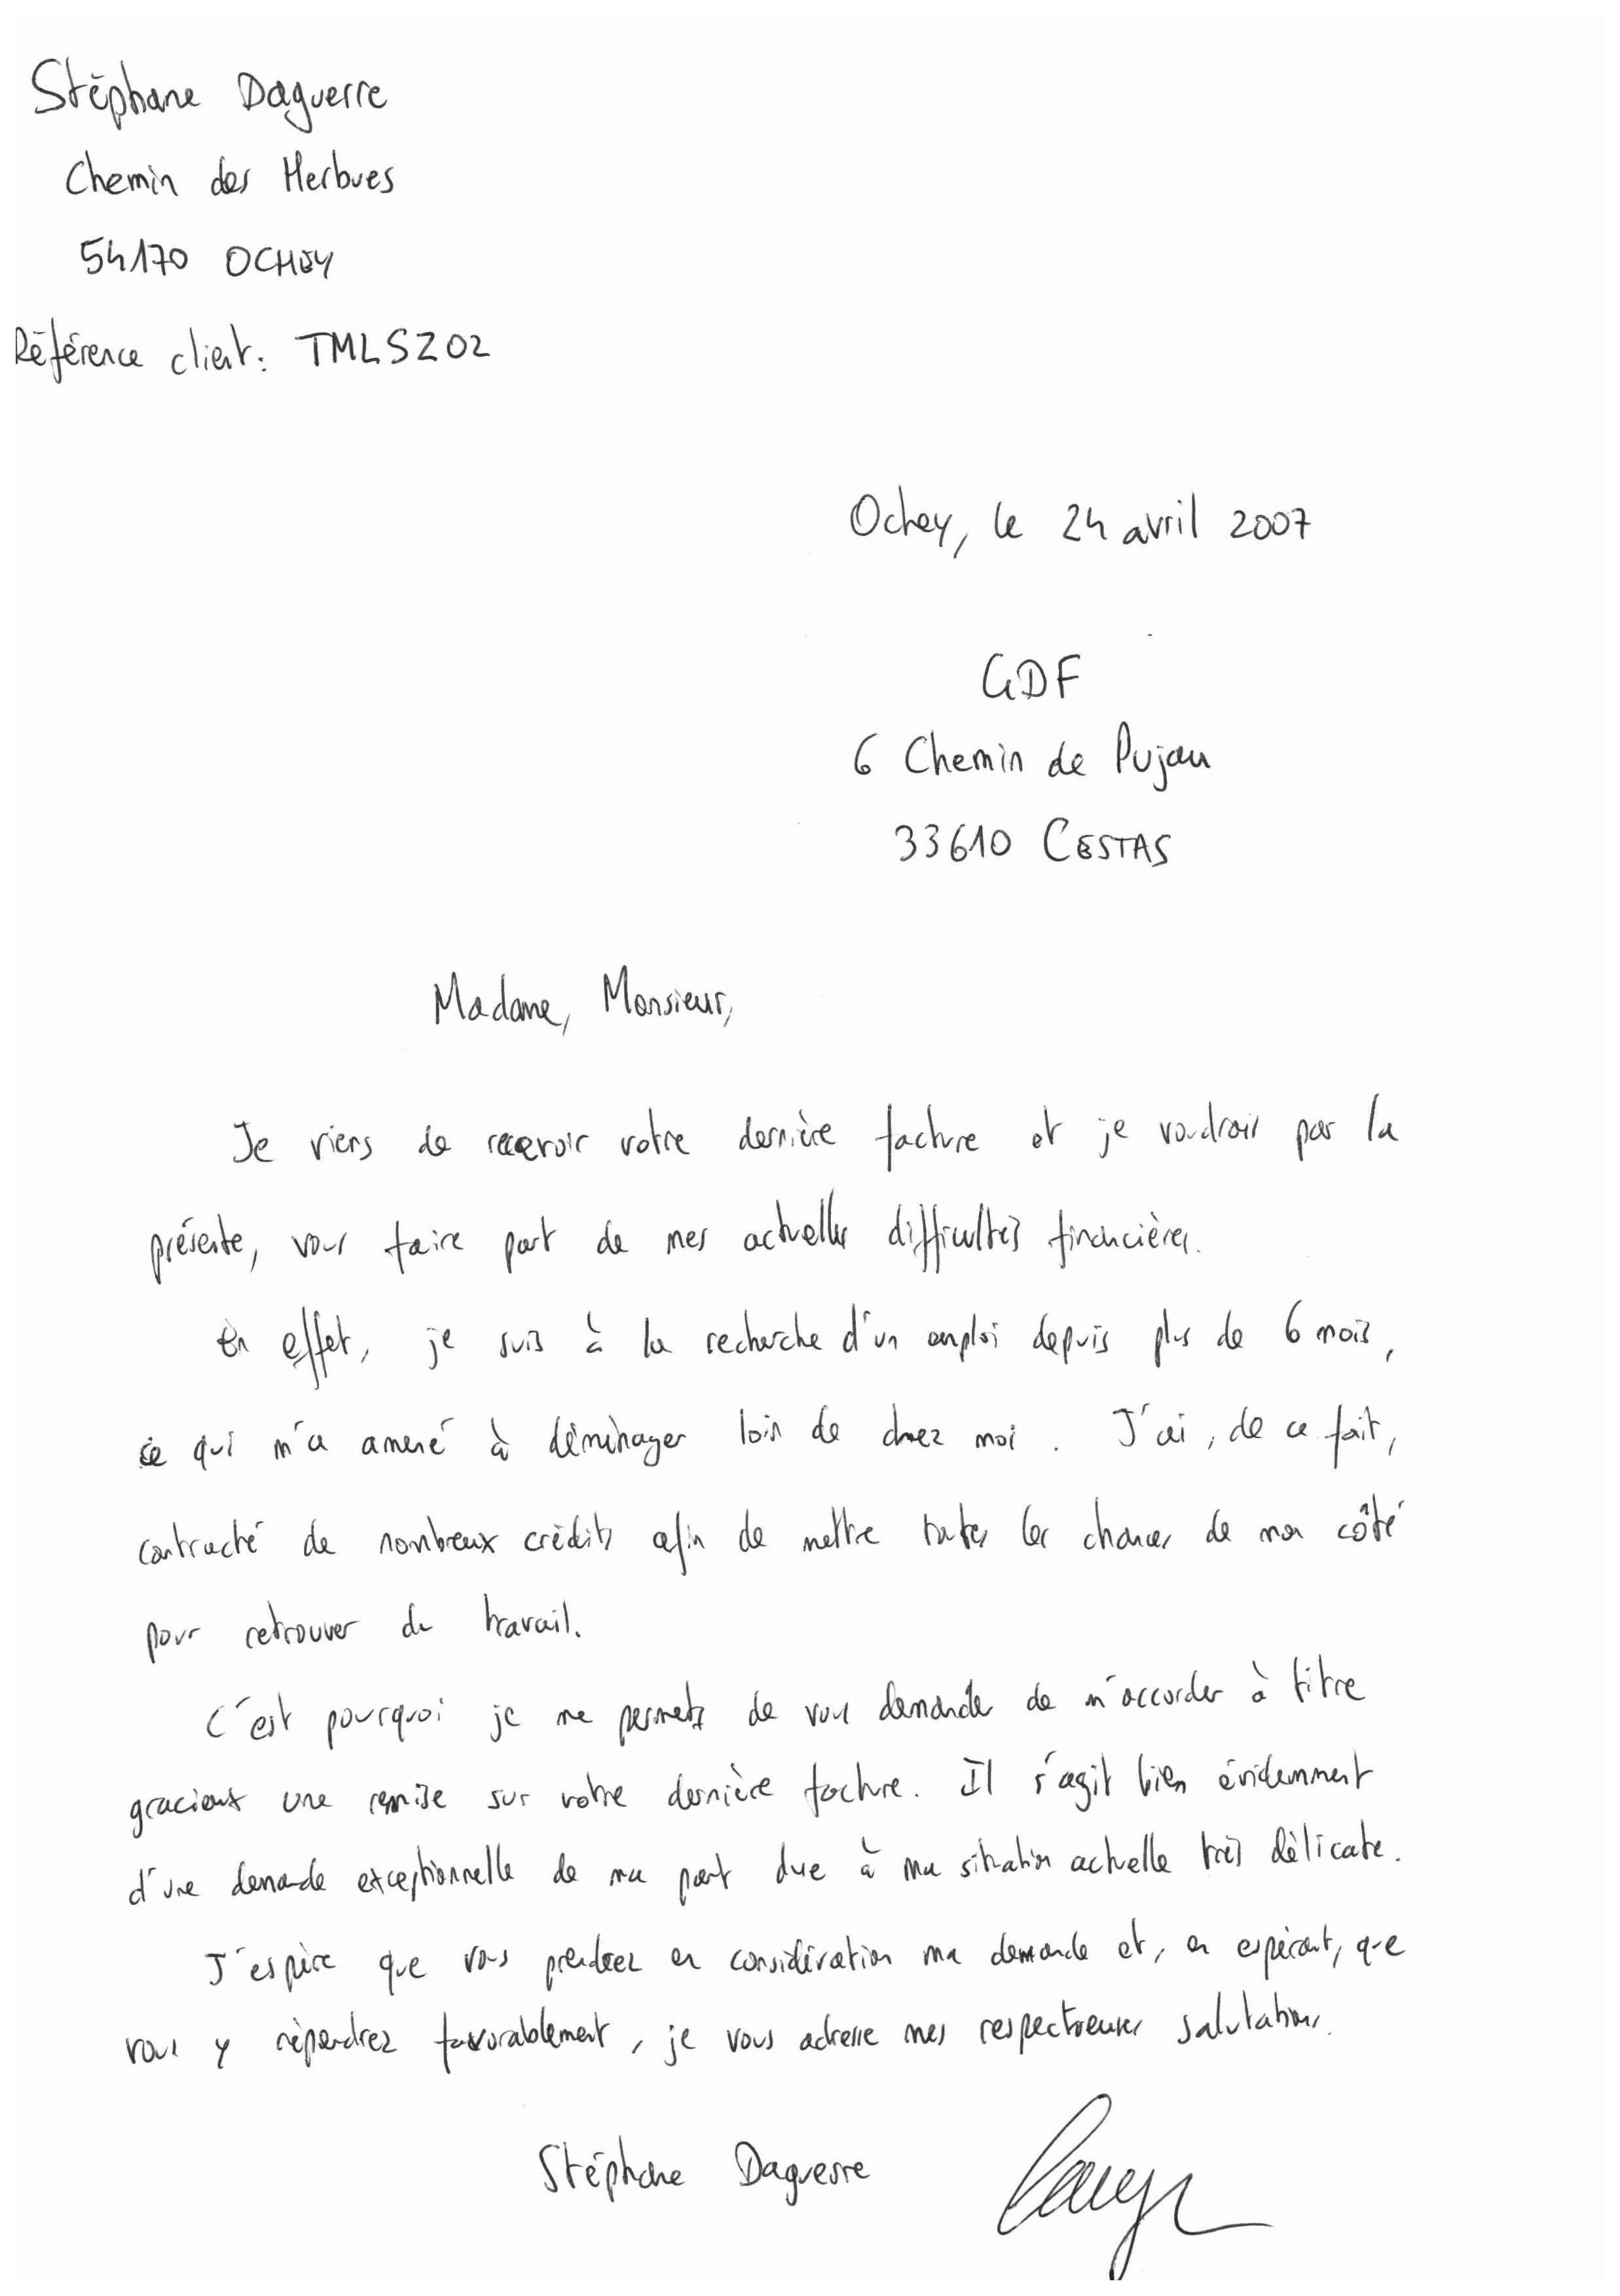 Stéphane Daguerre
Chemin des Herbues
54170 OCHEY
Référence client: TMLSZ02
Ochey, le 24 avril 2007
GDF
6 Chemin de Pujau
33610 CESTAS
Madame, Monsieur,
Je viens de recevoir votre dernière facture et je voudrais par la
présente, vous faire part de mes actuelles difficultés financières.
En effet, je suis à la recherche d'un emploi depuis plus de 6 mois,
ce qui m'a amené à déménager loin de chez moi. J'ai, de ce fait,
contracté de nombreux crédits afin de mettre toutes les chances de mon côté
pour retrouver du travail.
C'est pourquoi je me permets de vous demander de m'accorder à titre
gracieux une remise sur votre dernière facture. Il s'agit bien évidemment
d'une demande exceptionnelle de ma part due à ma situation actuelle très délicate.
J'espère que vous prendrez en considération ma demande et, en espérant, que
vous y répondrez favorablement, je vous adresse mes respectueuses salutations.
Stéphane Daguerre